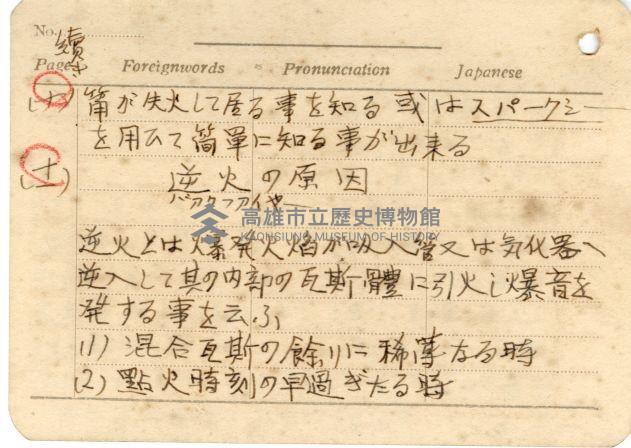 No. 續
Page Foreignwords Pronunciation Japanese
(十) 筩が失火して居る事を知る或はスパークシー
を用ひて簡單に知る事が出来る
(十)
逆火の原因
バックファイヤー
高雄市立歷史博物館
KAOHSIUNG MUSEUM OF HISTORY
逆火とは爆発火焰が吸入管又は気化器へ
逆入して其の内部の瓦斯體に引火し爆音を
発する事を云ふ
(1) 混合瓦斯の餘りに稀薄なる時
(2) 點火時刻の早過ぎたる時